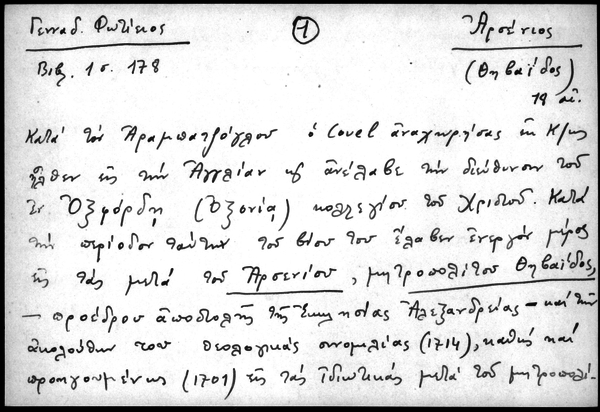 Γενναδ. Φωτίειος ① Ἀρσένιος
Βιβλ. 1 σ. 178 (Θηβαΐδος)
18 αἰ.
Κατά τόν Ἀραμπατζόγλου ὁ Covel ἀναχωρήσας ἐκ Κ/πως
ἦλθεν εἰς τήν Ἀγγλίαν καί ἀνέλαβε τήν διεύθυνσιν τοῦ
ἐν Ὀξφόρδῃ (Ὀξονίᾳ) κολλεγίου τοῦ Χριστοῦ. Κατά
τήν περίοδον ταύτην τοῦ βίου του ἔλαβεν ἐνεργόν μέρος
εἰς τάς μετά τοῦ Ἀρσενίου, μητροπολίτου Θηβαΐδος,
– προέδρου ἀποστολῆς τῆς Ἐκκλησίας Ἀλεξανδρείας – καί τήν
ἀκολούθων του θεολογικάς συνομιλίας (1714), καθώς καί
προηγουμένως (1701) εἰς τάς ἰδιωτικάς μετά τοῦ μητροπολί-